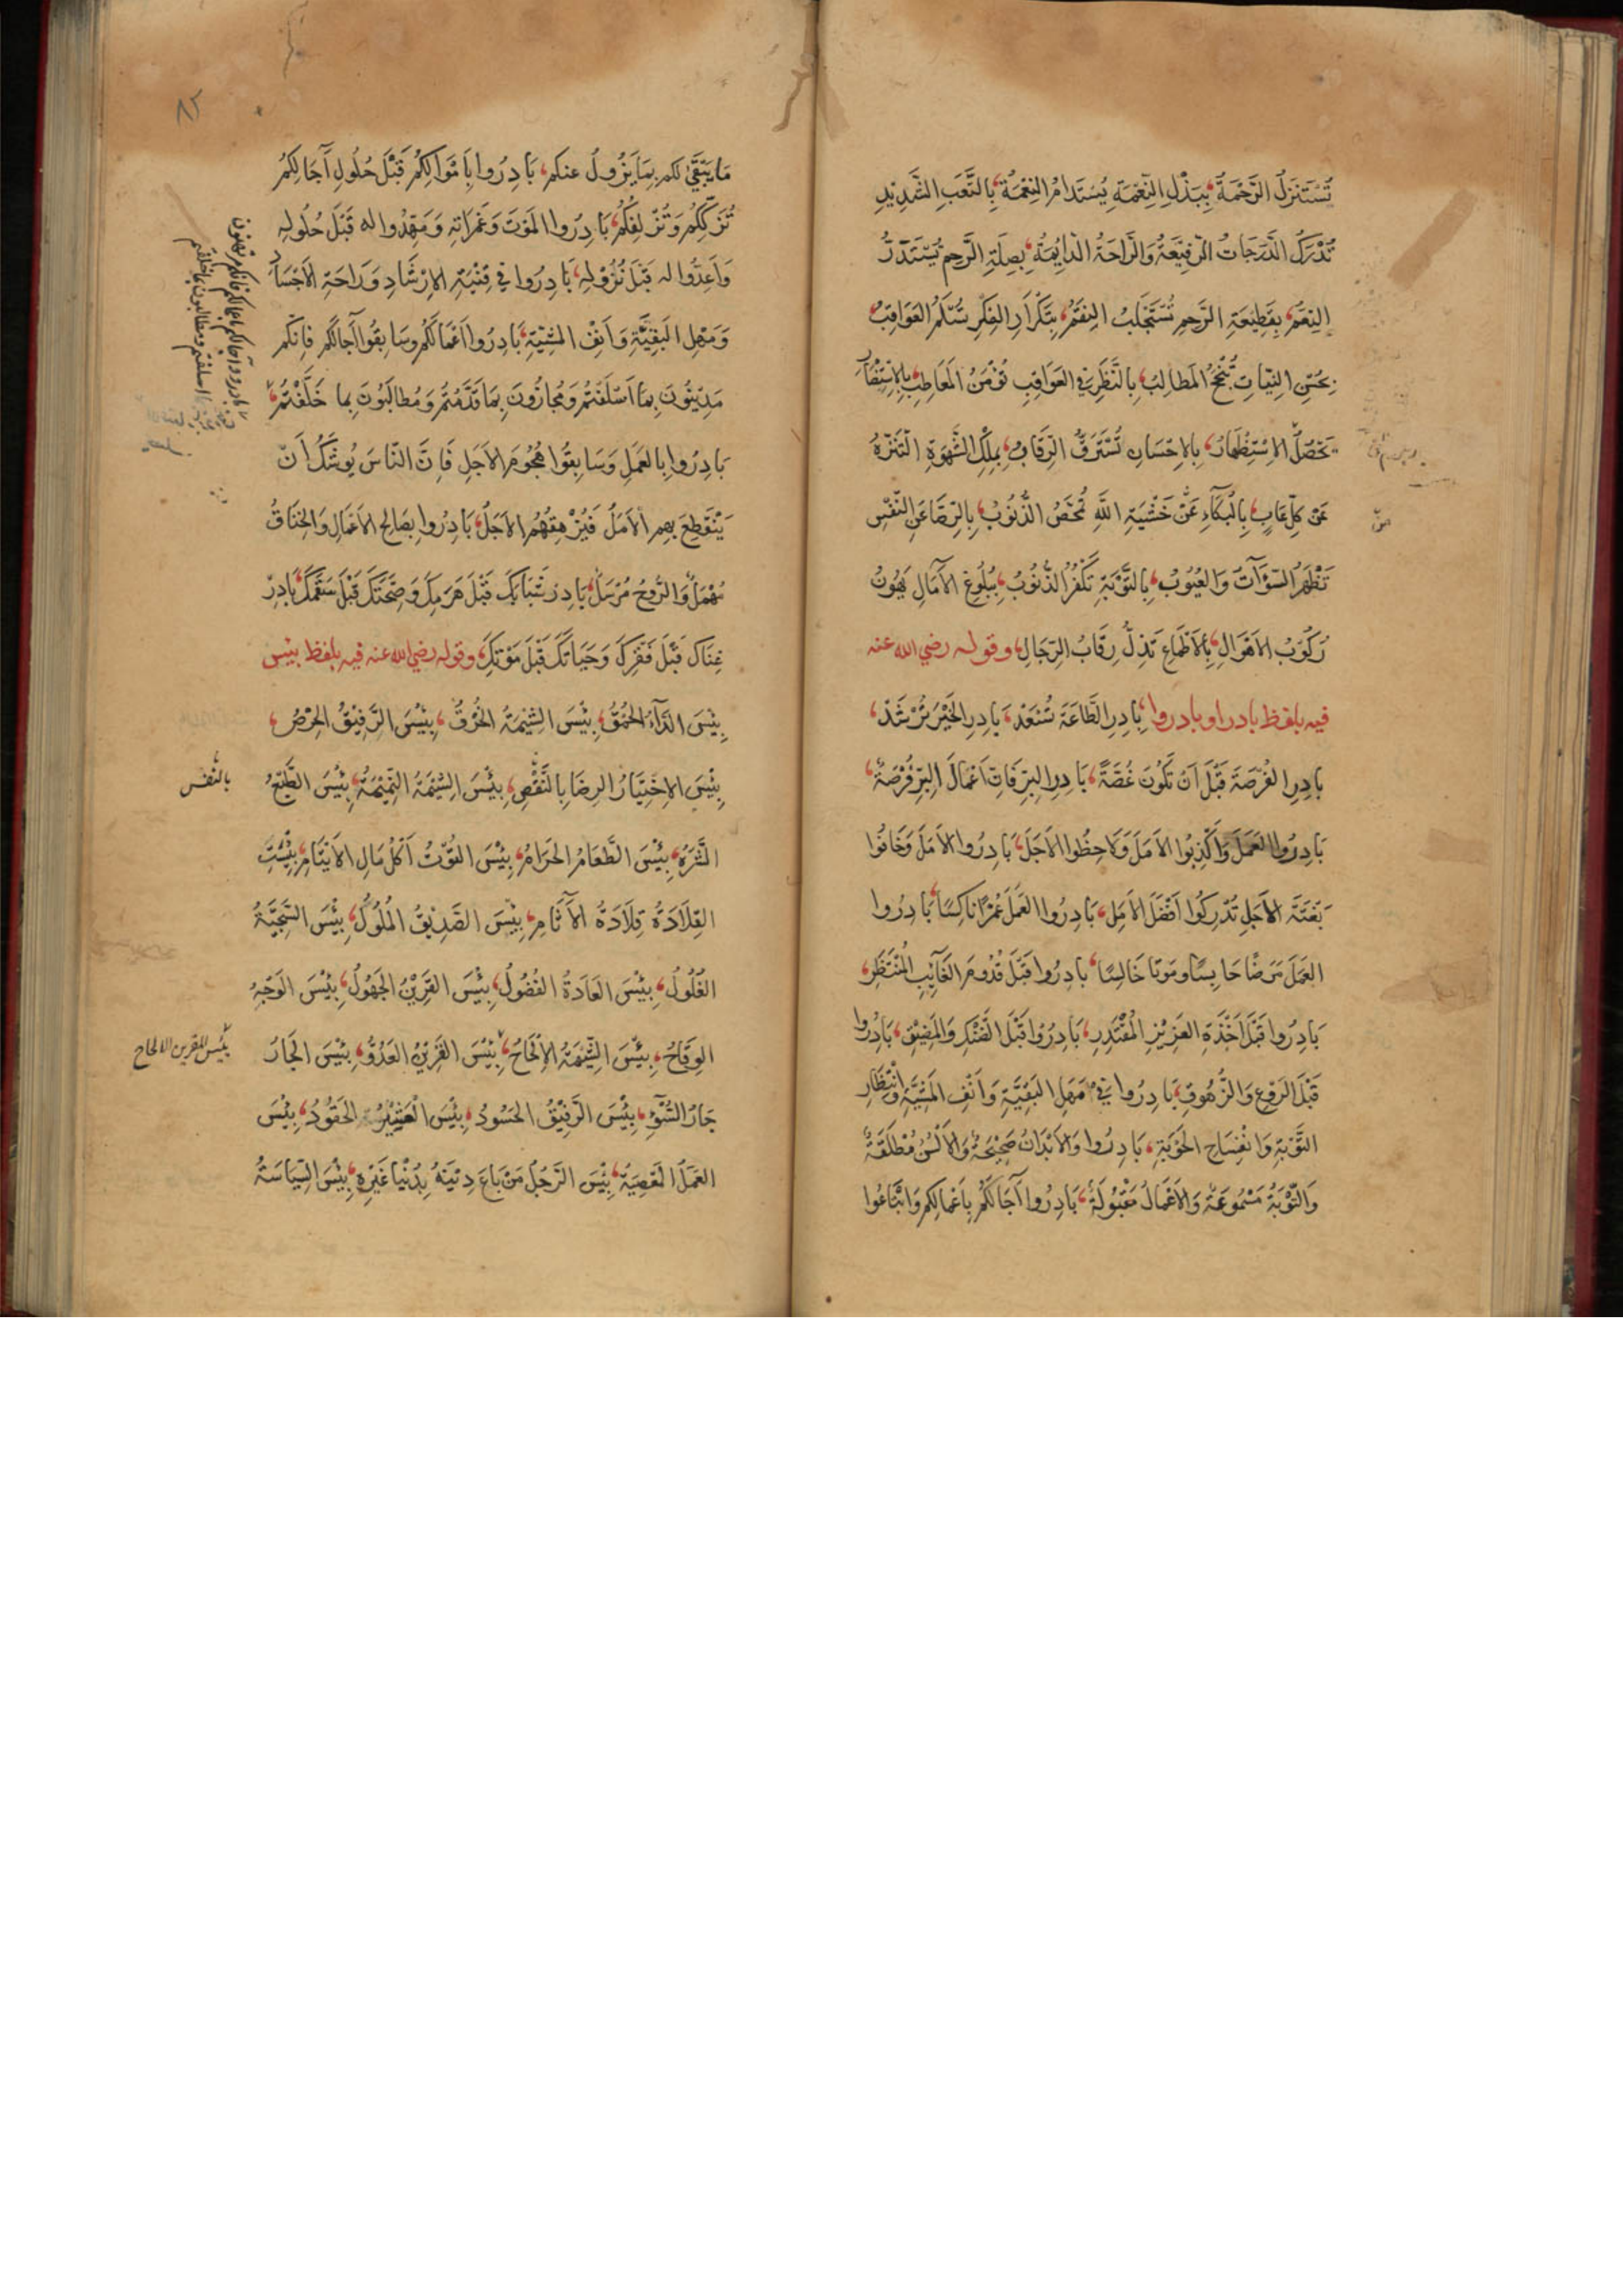 تُسْتَنزَلُ الرَّحْمَةُ، بِبَذْلِ النِّعْمَةِ يُسْتَدَامُ النِّعْمَةُ، بِالتَّعَبِ الشَّدِيْدِ
تُدْرَكُ الدَّرَجَاتُ الرَّفِيْعَةُ وَالرَّاحَةُ الدَّايِمَةُ، بِصِلَةِ الرَّحِمِ تُسْتَدَرُّ
النِعَمُ، بِقَطِيْعَةِ الرَّحِمِ تُسْتَجْلَبُ النِقَمُ، بِتَكْرَارِ الفِكْرِ تُسَلَّمُ العَوَاقِبُ،
بِحُسْنِ النِيَّاتِ تُنْجَحُ المَطَالِبُ، بِالنَّظَرِ فِي العَوَاقِبِ تُؤْمَنُ المَعَاطِبُ، بِالاِسْتِبْصَارِ
يَحْصُلُ الاِسْتِظْهَارُ، بِالاِحْسَانِ تُسْتَرَقُّ الرِّقَابُ، بِمِلْكِ الشَّهْوَةِ التَنَزُّهُ
عَنْ كُلِّ عَابٍ، بِالْبُكَاءِ عَنْ خَشْيَةِ اللَّهِ تُمَحَّصُ الذُّنُوْبُ، بِالرِّضَا عَنِ النَّفْسِ
تَظْهَرُ السَّوْآتُ وَالعُيُوْبُ، بِالتَّوْبَةِ تُكَفَّرُ الذُّنُوْبُ، بِبُلُوغِ الآمَالِ يَهُوْنُ
رُكُوْبُ الاَهْوَالِ، بِالاَطْمَاعِ تَذِلُّ رِقَابُ الرِّجَالِ، وقوله رضي الله عنه
فيه بلفظ بادر او بادروا، بَادِرِ الطَّاعَةَ تُسْعَدْ، بَادِرِ الْخَيْرَ تُرْشَدْ،
بَادِرِ الفُرْصَةَ قَبْلَ اَنْ تَكُوْنَ غُصَّةً، بَادِرِ البِرَّ فَاِنَّ اَعْمَالَ البِرِّ فُرْصَةٌ،
بَادِرُوا العَمَلَ وَاَكْذِبُوا الاَمَلَ وَلَاحِظُوا الاَجَلَ، بَادِرُوا الاَمَلَ وَخَافُوا
بَغْتَةَ الاَجَلِ تُدْرِكُوا اَفْضَلَ الاَمَلِ، بَادِرُوا العَمَلَ عُمْرًا نَاكِسًا، بَادِرُوا
العَمَلَ مَرَضًا حَابِسًا وَمَوتًا خَالِسًا، بَادِرُوا قَبْلَ قُدُوْمِ الغَآئِبِ الْمُنْتَظَرِ،
بَادِرُوا قَبْلَ اَخْذَةِ العَزِيْزِ الْمُقْتَدِرِ، بَادِرُوْا قَبْلَ الضَّنْكِ وَالمَضِيْقِ، بَادِرُوا
قَبْلَ الرَوْعِ وَالزُّهُوقِ، بَادِرُوا فِيْ مَهَلِ البَقِيَّةِ وَاَنْفِ المَشِيَّةِ وَانْتِظَارِ
التَّوْبَةِ وَانْفِسَاحِ الحَوْبَةِ، بَادِرُوا وَالاَبْدَانُ صَحِيْحَةٌ وَالاَلْسُنُ مُطْلَقَةٌ
وَالتَّوْبَةُ مَسْمُوعَةٌ وَالاَعْمَالُ مَقْبُولَةٌ، بَادِرُوا آجَالَكُمْ بِاَعْمَالِكُمْ وَابْتَاعُوا
٨٢
مَا يَبْقَى لكم بِمَا يَزُولُ عنكم، بَادِرُوا بِاَمْوَالِكُمْ قَبْلَ حُلُولِ آجَالِكُمْ
تُزَكِّكُمْ وَتُزْلِفْكُمْ، بَادِرُوا المَوْتَ وَغَمَرَاتِهِ وَمَهِّدُوا له قَبْلَ حُلُولِهِ
وَاَعِدُّوا له قَبْلَ نُزُوْلِهِ، بَادِرُوا فِي فَيْنَةِ الاِرْشَادِ وَرَاحَةِ الاَجْسَادِ
وَمَهَلِ البَقِيَّةِ وَاَنْفِ المَشِيَّةِ، بَادِرُوا اَعْمَالَكُمْ وسَابِقُوا آجَالَكُمْ فاِنَّكُم
مَدِيْنُونَ بِمَا اَسْلَفْتُمْ وَمُجَازُونَ بِمَا قَدَّمْتُمْ وَمُطَالَبُوْنَ بِما خَلَّفْتُمْ،
بَادِرُوا بِالعَمَلِ وَسَابِقُوا هُجُومَ الاَجَلِ فَاِنَّ النَّاسَ يُوْشَكُ اَنْ
يَنْقَطِعَ بِهِم الاَمَلُ فَيُزْهِقَهُمُ الاَجَلُ، بَادِرُوا بِصَالِحِ الاَعْمَالِ وَالخِنَاقُ
مُهْمَلٌ وَالرُّوحُ مُرْسَلٌ، بَادِرْ شَبَابَكَ قَبْلَ هَرَمِكَ وَصِحَّتَكَ قَبْلَ سَقَمِكَ، بَادِرْ
غِنَاكَ قَبْلَ فَقْرِكَ وَحَيَاتَكَ قَبْلَ مَوْتِكَ، وقوله رضي الله عنه فيه بلفظ بئس
بِئْسَ الدَّآءُ الحُمْقُ، بِئْسَ الشِيْمَةُ الخُرْقُ، بِئْسَ الرَّفِيْقُ الحِرْصُ،
بِئْسَ الاِخْتِيَارُ الرِضَا بِالنَّقْصِ، بِئْسَ الشِيْمَةُ النَّمِيْمَةُ، بِئْسَ الطَّبْعُ
بالنفس
الشَّرَهُ، بِئْسَ الطَّعَامُ الحَرَامُ، بِئْسَ القُوْتُ اَكْلُ مَالِ الاَيْتَامِ، بِئْسَتِ
القِلَادَةُ قِلَادَةُ الآثَامِ، بِئْسَ الصَّدِيْقُ المَلُولُ، بِئْسَ السَّجِيَّةُ
الغُلُولُ، بِئْسَ العَادَةُ الفُضُولُ، بِئْسَ القَرِيْنُ الجَهُولُ، بِئْسَ الوَجْهُ
الوِقَاحُ، بِئْسَ الشِّيْمَةُ الاِلْحَاحُ، بِئْسَ القَرِيْنُ العَدُوُّ، بِئْسَ الجَارُ
بئس القرين الالحاح
جَارُ السُّوْءِ، بِئْسَ الرَّفِيْقُ الحَسُودُ، بِئْسَ العَشِيْرُ الحَقُودُ، بِئْسَ
العَمَلُ المَعْصِيَةُ، بِئْسَ الرَّجُلُ مَنْ بَاعَ دِيْنَهُ بِدُنْيَا غَيْرِهِ، بِئْسَ السِّيَاسَةُ